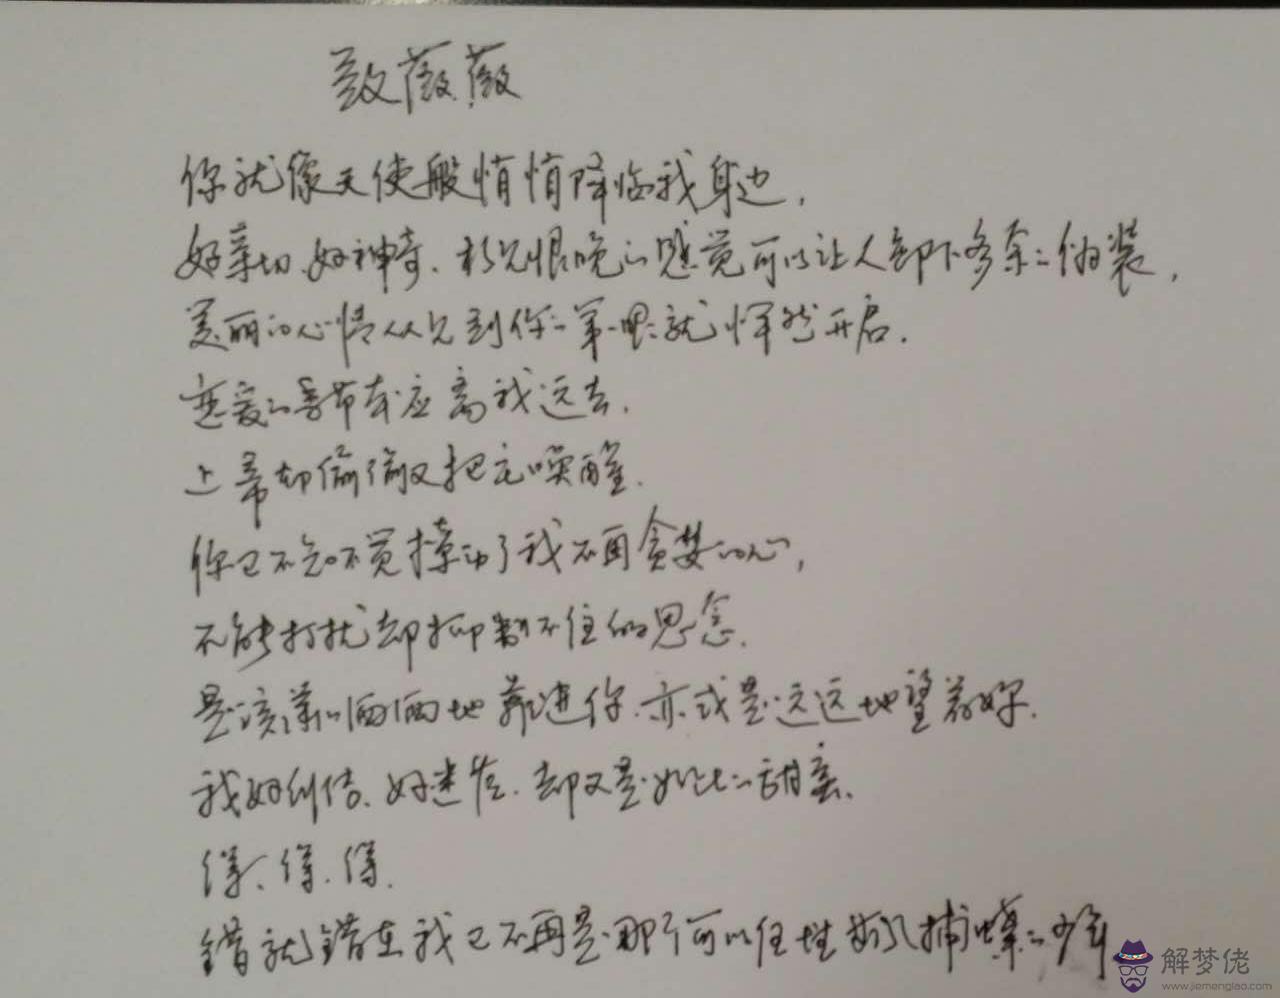 致薇薇
你就像天使般悄悄降临我身边,
好亲切、好神奇、相见恨晚的感觉可以让人卸下多余的伪装,
美丽的心情从见到你的第一眼就悍然开启.
恋爱的季节本应离我远去,
上帝却偷偷又把它唤醒.
你已不知不觉撩动了我不再贪婪的心,
不能打扰却抑制不住的思念.
是该潇洒俩俩地靠进你、亦或是远远地望着好.
我好纠结、好迷茫、却又是如此的甜蜜、
得、得、得、
错就错在我已不再是那个可以任性扬风捕蝶的少年
解梦佬
www.jiemenglao.com